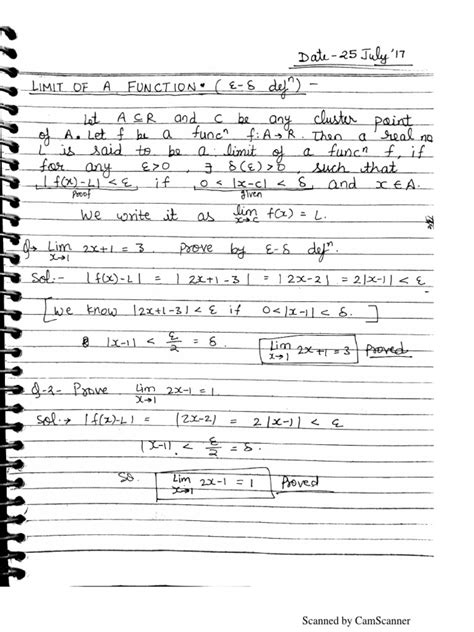 Date - 25 July '17
LIMIT OF A FUNCTION. (ε-δ defⁿ) -
Let A⊆R and C be any cluster point
of A. Let f be a funcⁿ f: A→R. Then a real no
L is said to be a limit of a funcⁿ f if
for any ε>0, ∃ δ(ε)>0 such that
|f(x)-L|<ε if 0<|x-c|<δ and x∈A.
Proof given
We write it as lim x→c f(x) = L.
Q→ Lim x→1 2x+1 = 3. Prove by ε-δ defⁿ.
Sol:- |f(x)-L| = |2x+1-3| = |2x-2| = 2|x-1| < ε
[We know |2x+1-3| < ε if 0<|x-1| < δ.]
|x-1| < ε/2 = δ. Lim x→1 2x+1 = 3 Proved
Q-2- Prove Lim x→1 2x-1 = 1.
Sol:→ |f(x)-L| = |2x-2| = 2|x-1| < ε
|x-1| < ε/2 = δ.
So Lim x→1 2x-1 = 1 Proved
Scanned by CamScanner